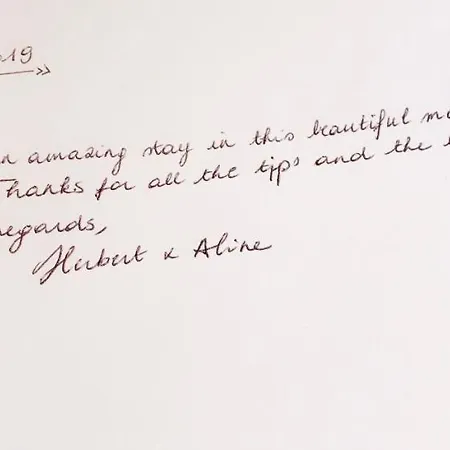 19
an amazing stay in this beautiful
Thanks for all the tips and the
regards,
Hubert & Aline